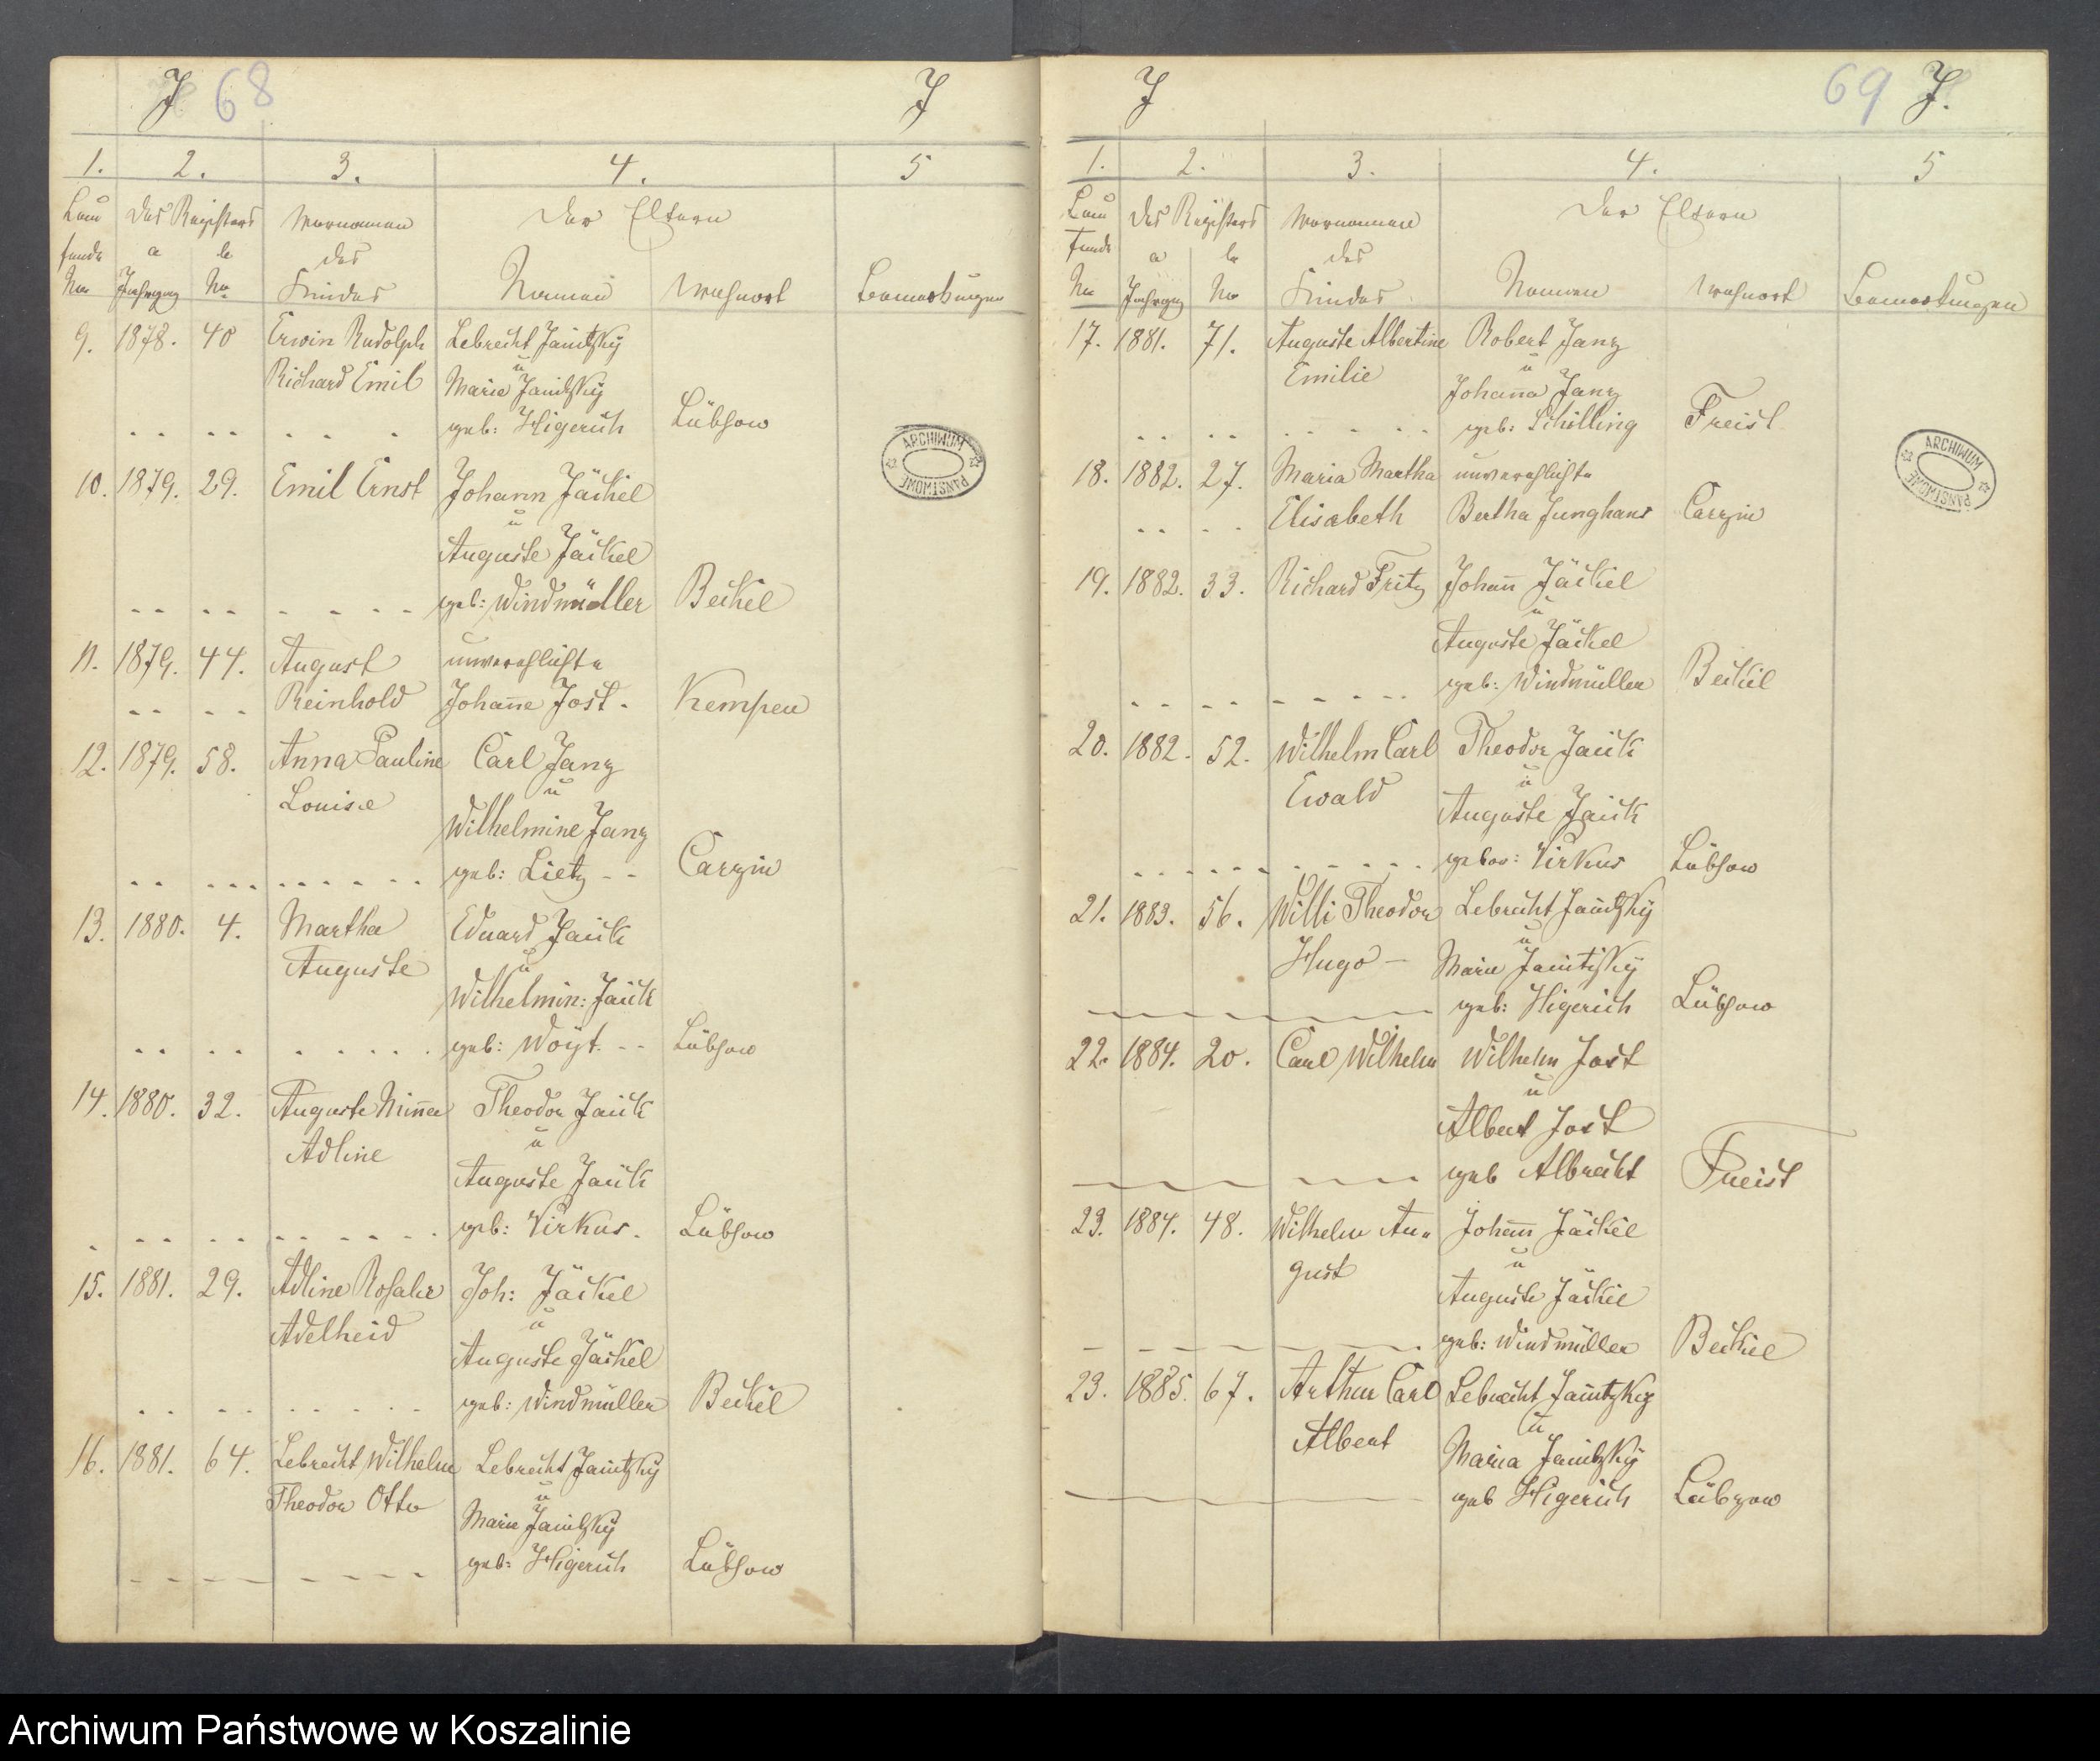 J 68 J
1. 2. 3. 4. 5
Lau des Registers Vornamen Der Eltern
fende a b des
No Jahrgang No Kindes Namen Wohnort Bemerkungen
9. 1878. 40 Erwin Rudolph Lebrecht Janitzky
u
Richard Emil Marie Janitzky
geb: Higerich Lübsow
10. 1879. 29. Emil Ernst Johann Jäckel
u
Auguste Jäckel
geb: Windmüller Beckel
11. 1879. 44. August unverehlichte
Reinhold Johan̄e Jost. Kempen
12. 1879. 58. Anna Pauline Carl Janz
u
Louise Wilhelmine Janz
geb: Lietz - - Carzin
13. 1880. 4. Martha Eduard Jauk
u
Auguste Wilhelmin: Jauk
geb: Woyt. - - Lübsow
14. 1880. 32. Auguste Min̄a Theodor Jauk
u
Adline Auguste Jauk
geb: Virkus. Lübsow
15. 1881. 29. Adline Rosalie Joh: Jäckel
u
Adelheid Auguste Jäckel
geb: Windmüller Beckel
16. 1881. 64. Lebrecht Wilhelm Lebrecht Janitzky
u
Theodor Otto Marie Janitzky
geb: Higerich Lübsow
J 69 J.
1. 2. 3. 4. 5
Lau des Registers Vornamen Der Eltern
fende a b des
No Jahrgang No Kindes Namen Wohnort Bemerkungen
17. 1881. 71. Auguste Albertine Robert Janz
u
Emilie Johan̄a Janz
geb: Schilling Freist
18. 1882. 27. Maria Martha unverehlichte
Elisabeth Bertha Junghans Carzin
19. 1882. 33. Richard Fritz Johan̄ Jäckel
u
Auguste Jäckel
geb: Windmüller Beckel
20. 1882. 52. Wilhelm Carl Theodor Jauk
u
Ewald Auguste Jauk
gebor: Virkus Lübsow
21. 1883. 56. Willi Theodor Lebrecht Janitzky
u
Hugo - Marie Janitzky
geb: Higerich Lübsow
22. 1884. 20. Carl Wilhelm Wilhelm Jost
u
Albert Jost
geb Albrecht Freist
23. 1884. 48. Wilhelm Au= Johan̄ Jäckel
u
gust Auguste Jäckel
geb: Windmüller Beckel
23. 1885. 67. Arthur Carl Lebrecht Janitzky
u
Albert Maria Janitzky
geb Higerich Lübzow
ARCHIWUM PAŃSTWOWE
ARCHIWUM PAŃSTWOWE
Archiwum Państwowe w Koszalinie